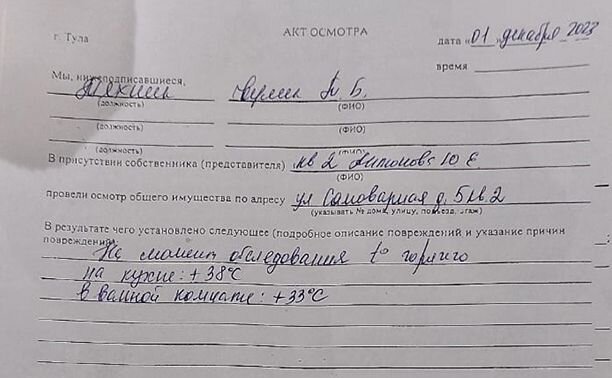 г. Тула
АКТ ОСМОТРА
дата «01 » декабря 2023
время
Мы, нижеподписавшиеся,
Техник
Т Б.
(должность)
(ФИО)
(должность)
(ФИО)
(должность)
(ФИО)
В присутствии собственника (представителя) кв 2 Антонова Ю Е
(ФИО)
провели осмотр общего имущества по адресу ул Самоварная д. 5 кв. 2
(указывать № дома, улицу, подъезд, этаж)
В результате чего установлено следующее (подробное описание повреждений и указание причин
повреждений)
На момент обследования t° горячего
на кухне: +38°C
в ванной комнате: +33°C